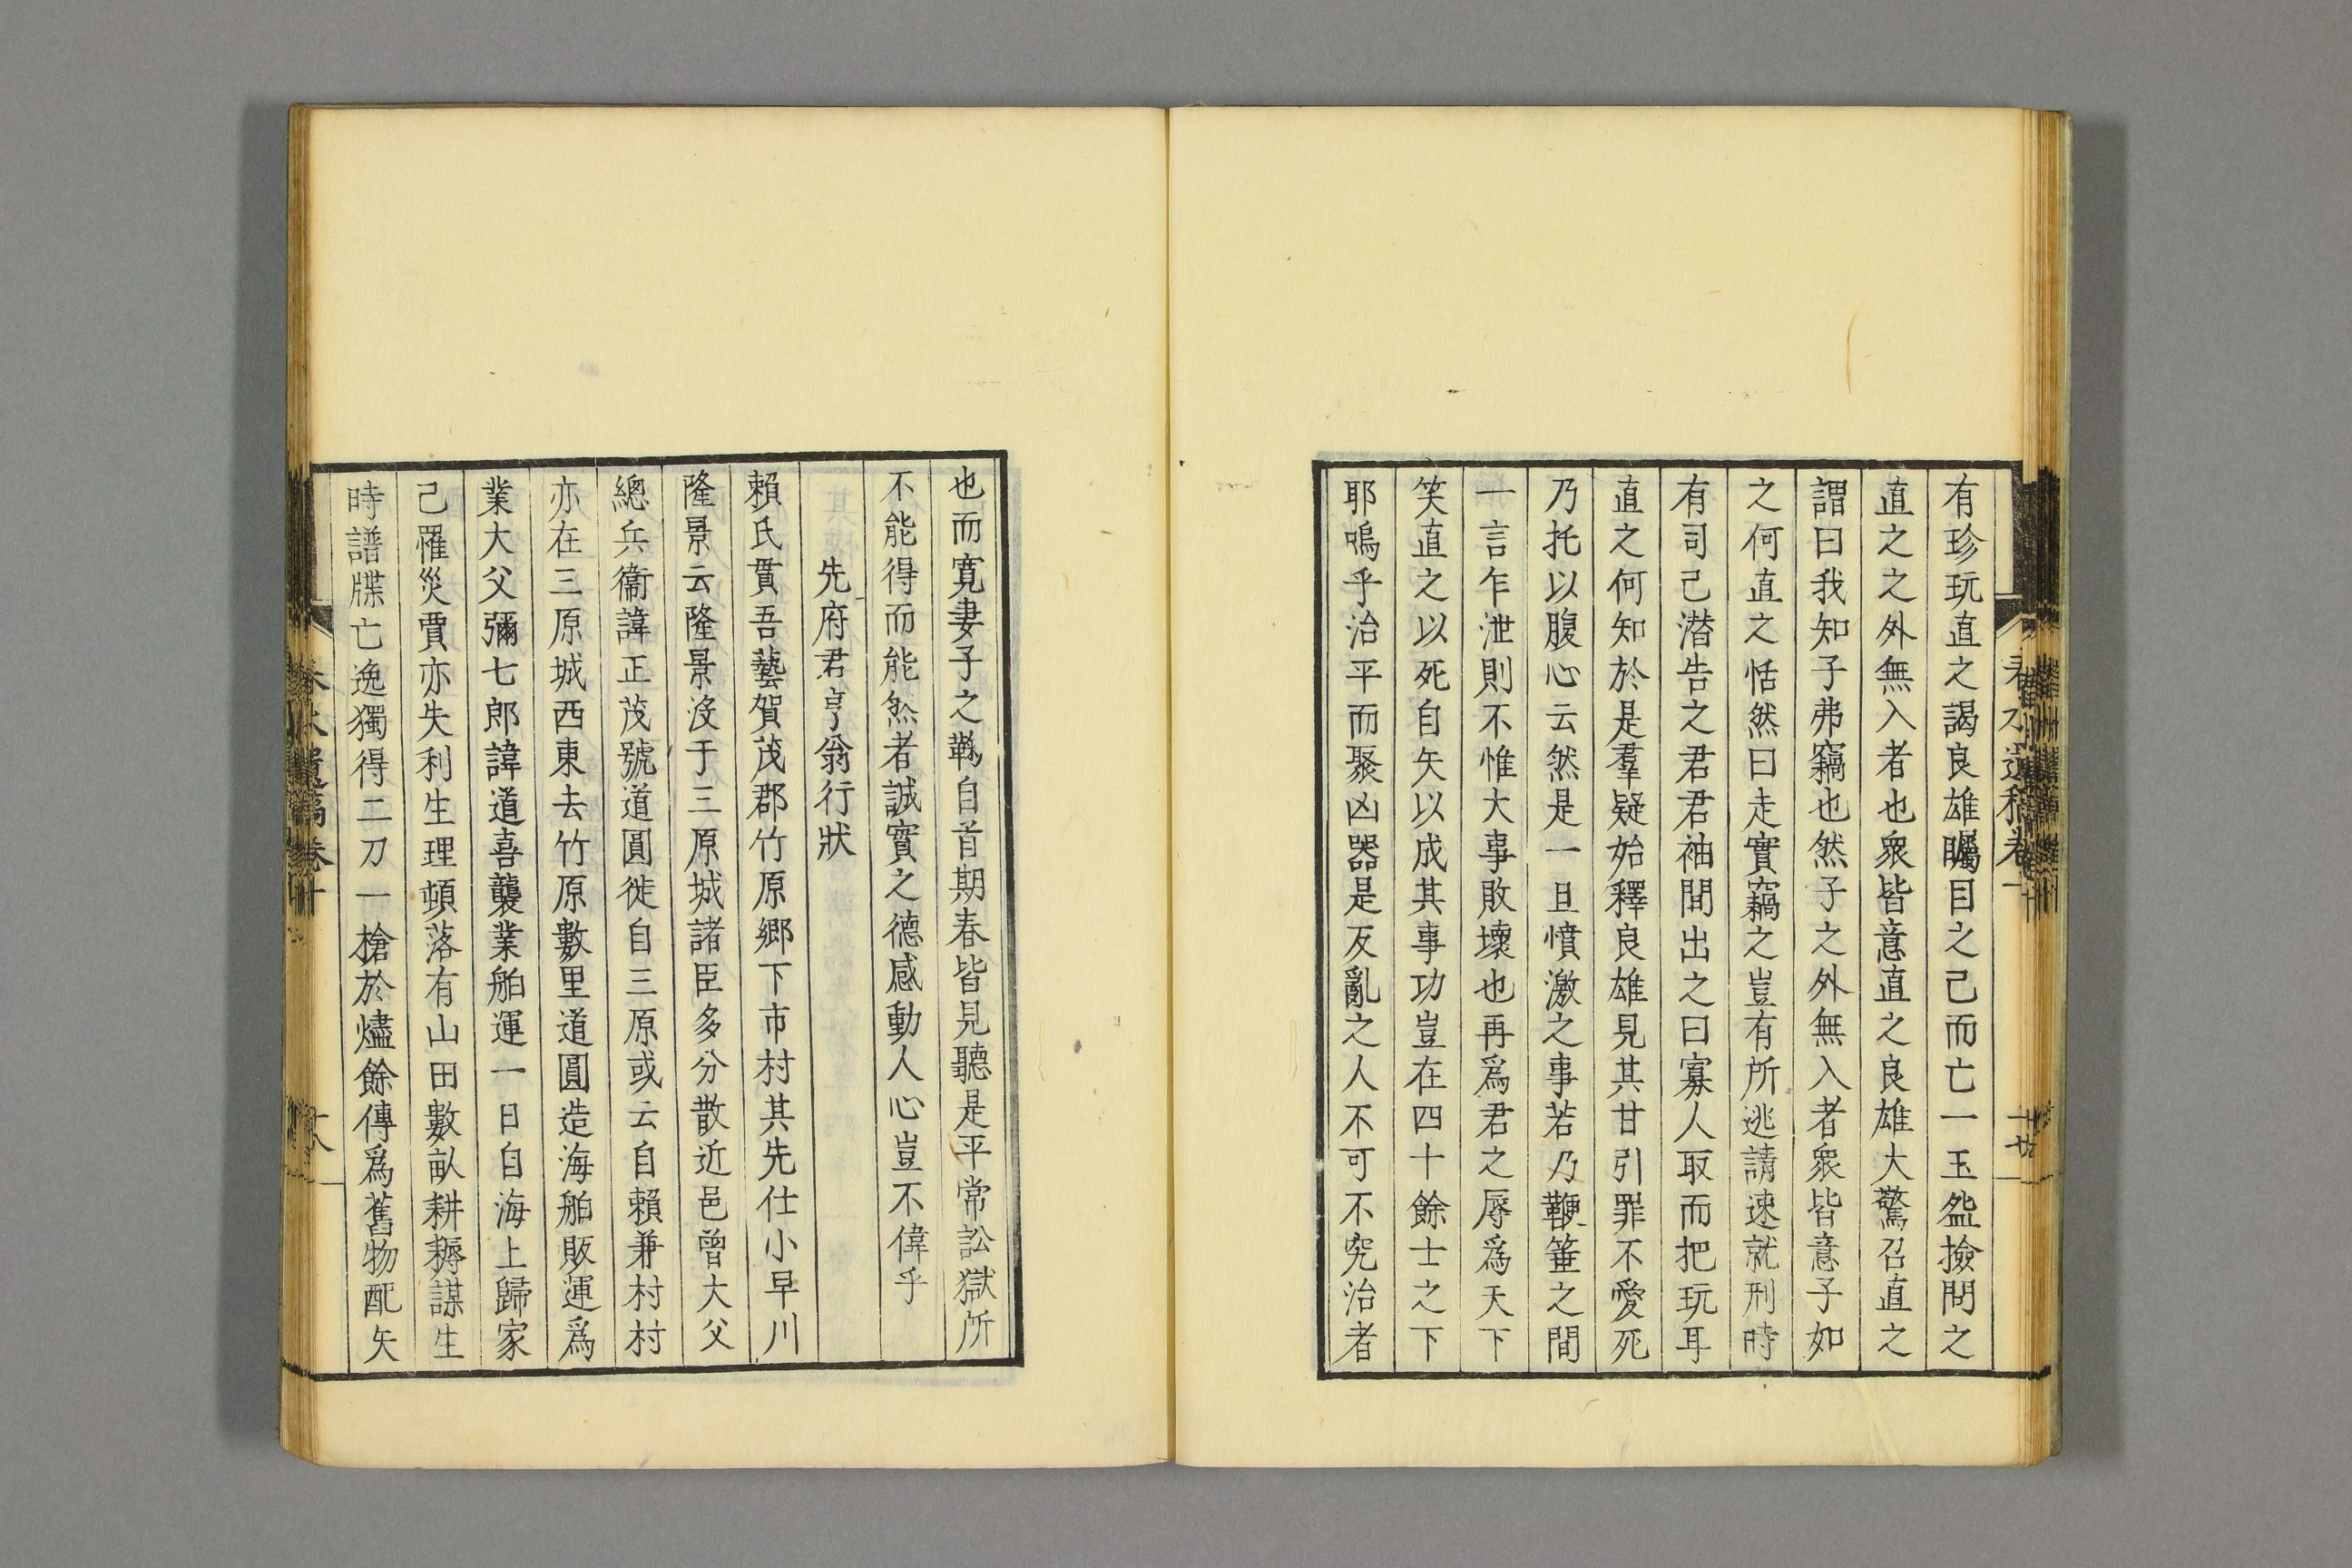 有珍玩直之謁良雄矚目之已而亡一玉盌撿問之
直之之外無入者也衆皆意直之良雄大驚召直之
謂曰我知子弗竊也然子之外無入者衆皆意子如
之何直之恬然曰走實竊之豈有所逃請速就刑時
有司已潛告之君君袖間出之曰寡人取而把玩耳
直之何知於是羣疑始釋良雄見其甘引罪不愛死
乃托以腹心云然是一旦憤激之事若乃鞭箠之間
一言乍泄則不惟大事敗壞也再爲君之辱爲天下
笑直之以死自矢以成其事功豈在四十餘士之下
耶嗚乎治平而聚凶器是反亂之人不可不究治者
也而寬妻子之羈自首期春皆見聽是平常訟獄所
不能得而能然者誠實之德感動人心豈不偉乎
先府君亨翁行狀
賴氏貫吾藝賀茂郡竹原鄉下市村其先仕小早川
隆景云隆景沒于三原城諸臣多分散近邑曾大父
總兵衞諱正茂號道圓徙自三原或云自賴兼村村
亦在三原城西東去竹原數里道圓造海舶販運爲
業大父彌七郎諱道喜襲業舶運一日自海上歸家
已罹災賈亦失利生理頓落有山田數畝耕耨謀生
時譜牒亡逸獨得二刀一槍於燼餘傳爲舊物配矢